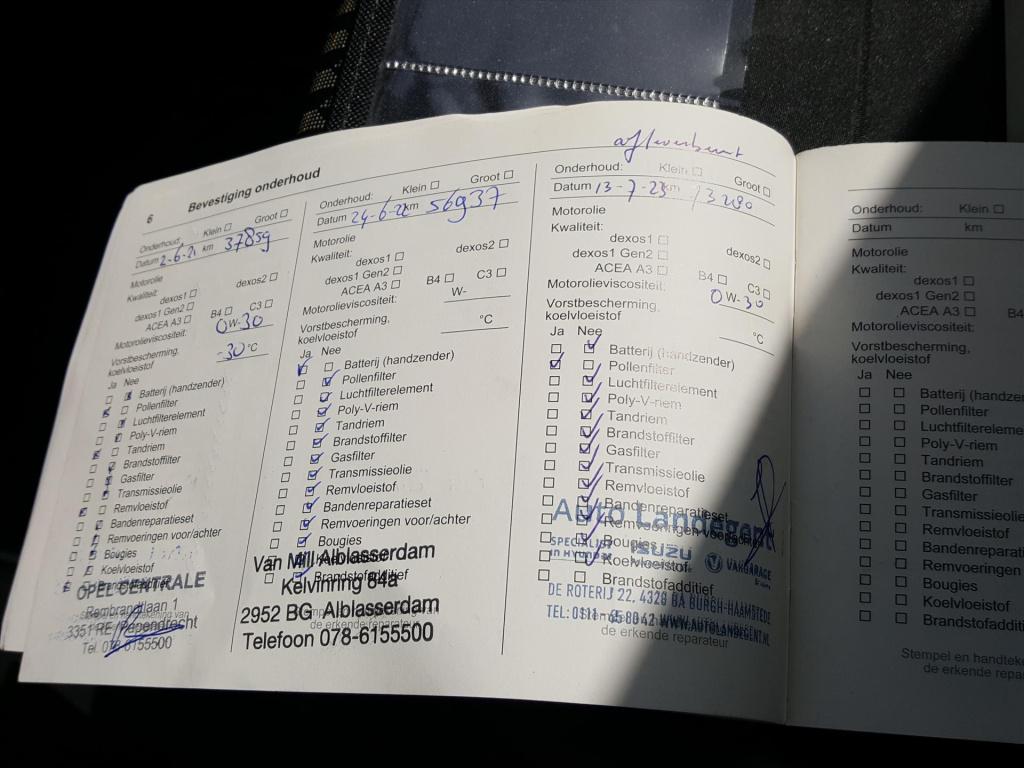 6 Bevestiging onderhoud
Onderhoud: Klein Groot
Datum 2-6-21 km 37859
Motorolie
Kwaliteit: dexos2
dexos1
dexos1 Gen2
ACEA A3 B4 C3
Motorolieviscositeit: 0W-30
Vorstbescherming, koelvloeistof -30 °C
Ja Nee
Batterij (handzender)
Pollenfilter
Luchtfilterelement
Poly-V-riem
Tandriem
Brandstoffilter
Gasfilter
Transmissieolie
Remvloeistof
Bandenreparatieset
Remvoeringen voor/achter
Bougies
Koelvloeistof
OPEL CENTRALE
Rembrandtlaan 1
3351 RE Papendrecht
Tel. 078-6155500
Onderhoud: Klein Groot
Datum 24-6-22 km 56937
Motorolie
Kwaliteit: dexos2
dexos1
dexos1 Gen2
ACEA A3 B4 C3
Motorolieviscositeit: W-
Vorstbescherming,
koelvloeistof °C
Ja Nee
Batterij (handzender)
Pollenfilter
Luchtfilterelement
Poly-V-riem
Tandriem
Brandstoffilter
Gasfilter
Transmissieolie
Remvloeistof
Bandenreparatieset
Remvoeringen voor/achter
Bougies
Van Mill Alblasserdam
Kelvinring 84a
2952 BG Alblasserdam
Telefoon 078-6155500
de erkende reparateur
afleverbeurt
Onderhoud: Klein Groot
Datum 13-7-23 km 73290
Motorolie
Kwaliteit:
dexos1 dexos2
dexos1 Gen2
ACEA A3 B4 C3
Motorolieviscositeit: 0W-30
Vorstbescherming,
koelvloeistof °C
Ja Nee
Batterij (handzender)
Pollenfilter
Luchtfilterelement
Poly-V-riem
Tandriem
Brandstoffilter
Gasfilter
Transmissieolie
Remvloeistof
Bandenreparatieset
Remvoeringen voor/achter
Bougies
Koelvloeistof
Brandstofadditief
Auto Landegent
SPECIALIST IN HYUNDAI ISUZU VAKGARAGE
DE ROTERIJ 22, 4328 BA BURGH-HAAMSTEDE
TEL: 0111-658042 WWW.AUTOLANDEGENT.NL
de erkende reparateur
Onderhoud: Klein
Datum km
Motorolie
Kwaliteit:
dexos1
dexos1 Gen2
ACEA A3 B4
Motorolieviscositeit:
Vorstbescherming,
koelvloeistof
Ja Nee
Batterij (handze
Pollenfilter
Luchtfiltereleme
Poly-V-riem
Tandriem
Brandstoffilter
Gasfilter
Transmissieolie
Remvloeistof
Bandenreparati
Remvoeringen
Bougies
Koelvloeistof
Brandstofadditi
Stempel en handteke
de erkende repa